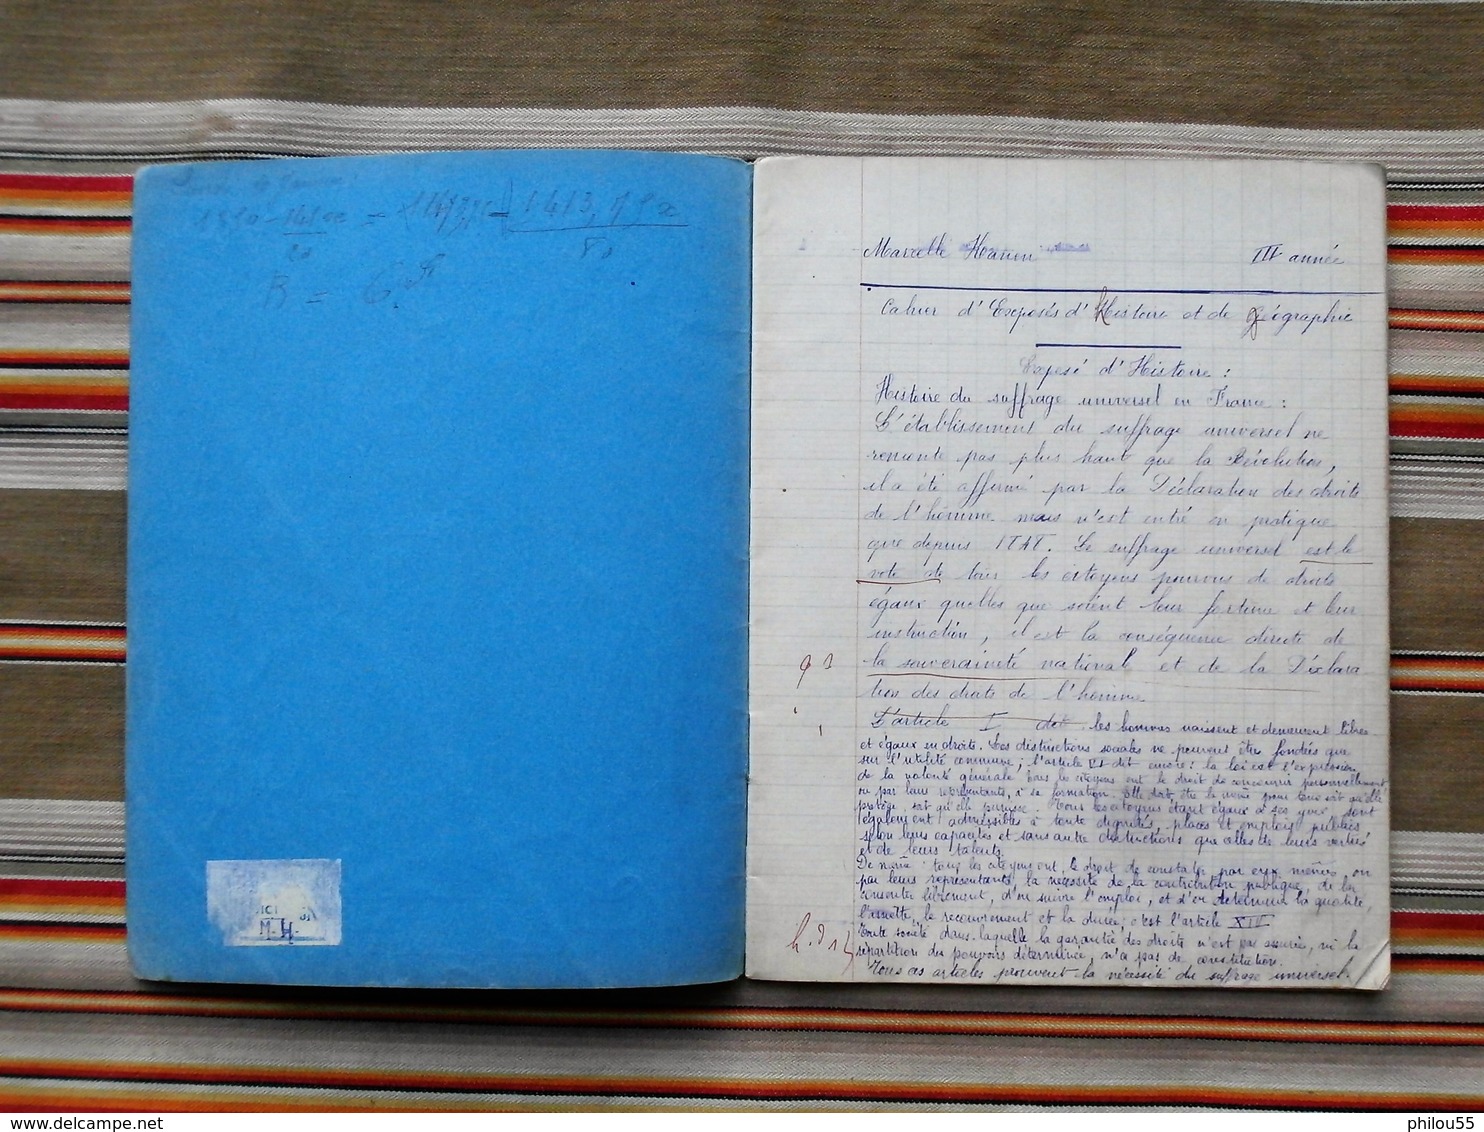 B = 6
M. H.
Marcelle III année
Cahier d'Exposés d'Histoire et de Géographie
Exposé d'Histoire :
Histoire du suffrage universel en France :
L'établissement du suffrage universel ne
remonte pas plus haut que la Révolution,
il a été affirmé par la Déclaration des droits
de l'homme mais n'est entré en pratique
que depuis 1848. Le suffrage universel est le
vote de tous les citoyens pourvus de droits
égaux quelles que soient leur fortune et leur
instruction, il est la conséquence directe de
la souveraineté national et de la Déclara-
tion des droits de l'homme.
L'article I dit les hommes naissent et demeurent libres
et égaux en droits. Les distinctions sociales ne peuvent être fondées que
sur l'utilité commune ; l'article VI dit encore : la loi est l'expression
de la volonté générale tous les citoyens ont le droit de concourir personnellement
ou par leurs représentants, à sa formation. Elle doit être la même pour tous soit qu'elle
protège, soit qu'elle punisse. Tous les citoyens étant égaux à ses yeux sont
également admissibles à toute dignités, places et emplois publics
selon leurs capacités et sans autre distinctions que celles de leurs vertus
et de leurs talents.
De même : tous les citoyens ont le droit de constater par eux mêmes ou
par leurs représentants la nécessité de la contribution publique, de la
consentir librement, d'en suivre l'emploi, et d'en déterminer la quotité,
l'assiette, le recouvrement et la durée ; c'est l'article XIV
Toute société dans laquelle la garantie des droits n'est pas assurée, ni la
répartition des pouvoirs déterminée, n'a pas de constitution.
Tous ces articles prouvent la nécessité du suffrage universel.
delcampe.net
philou55